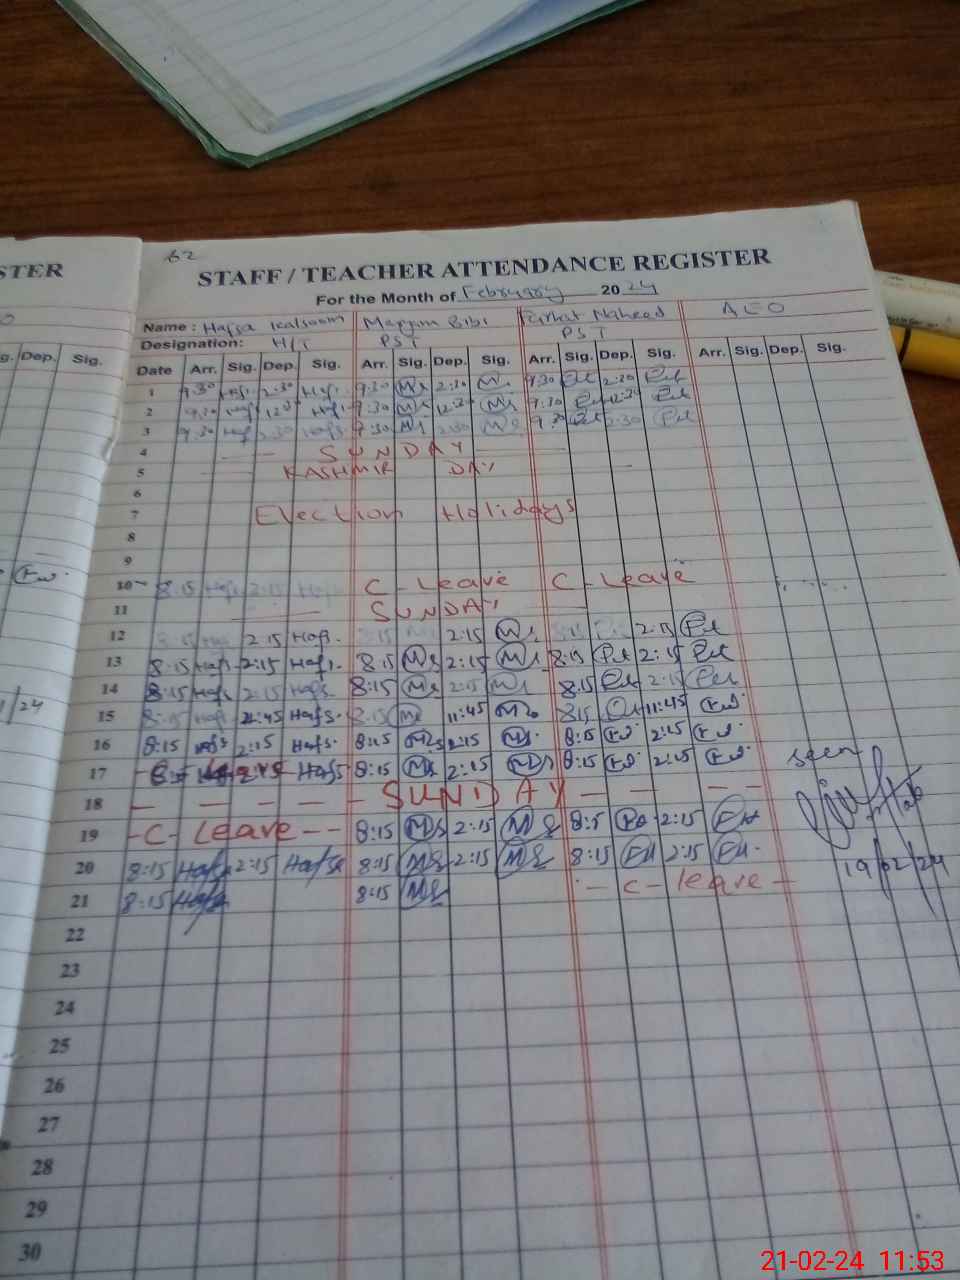 62
STER
STAFF / TEACHER ATTENDANCE REGISTER
For the Month of February 2024
Name : Hafsa Kalsoom Maryam Bibi Farhat Naheed AEO
Designation: H/T PST PST
g. Dep. Sig. Date Arr. Sig. Dep. Sig. Arr. Sig. Dep. Sig. Arr. Sig. Dep. Sig. Arr. Sig. Dep. Sig.
1 9:30 Hafs 2:30 Hafs. 9:30 Ms 2:30 M 9:30 2:30
2 9:30 Hafs 9:30 Ms 12:30 Ms 9:30 12:30
3 9:30 Hafs 2:30 Hafs 9:30 Ms 2:30 Ms 9:30 2:30
4 SUNDAY
5 KASHMIR DAY
6
7 Election Holidays
8
9
10 8:15 Hafs 2:15 Hafs C - Leave C - Leave
11 SUNDAY
12 8:15 2:15 Hafs. 8:15 2:15 Ms 8:15 2:15
13 8:15 Hafs 2:15 Hafs. 8:15 Ms 2:15 Ms 8:15 2:15
14 8:15 Hafs 2:15 Hafs. 8:15 Ms 2:15 Ms 8:15 2:15
1/24
15 8:15 Hafs 11:45 Hafs. 8:15 Ms 11:45 Ms 8:15 11:45
16 8:15 Hafs 2:15 Hafs. 8:15 Ms 2:15 Ms. 8:15 2:15
17 2:15 Hafs 8:15 Ms 2:15 Ms 8:15 2:15
seen
18 - - - - - SUNDAY - - - -
19 - C - Leave - - 8:15 Ms 2:15 Ms 8:15 2:15
20 8:15 Hafs 2:15 Hafs 8:15 Ms 2:15 Ms 8:15 2:15
19/02/24
21 8:15 Hafs 8:15 Ms - C - leave -
22
23
24
25
26
27
28
29
30
21-02-24 11:53